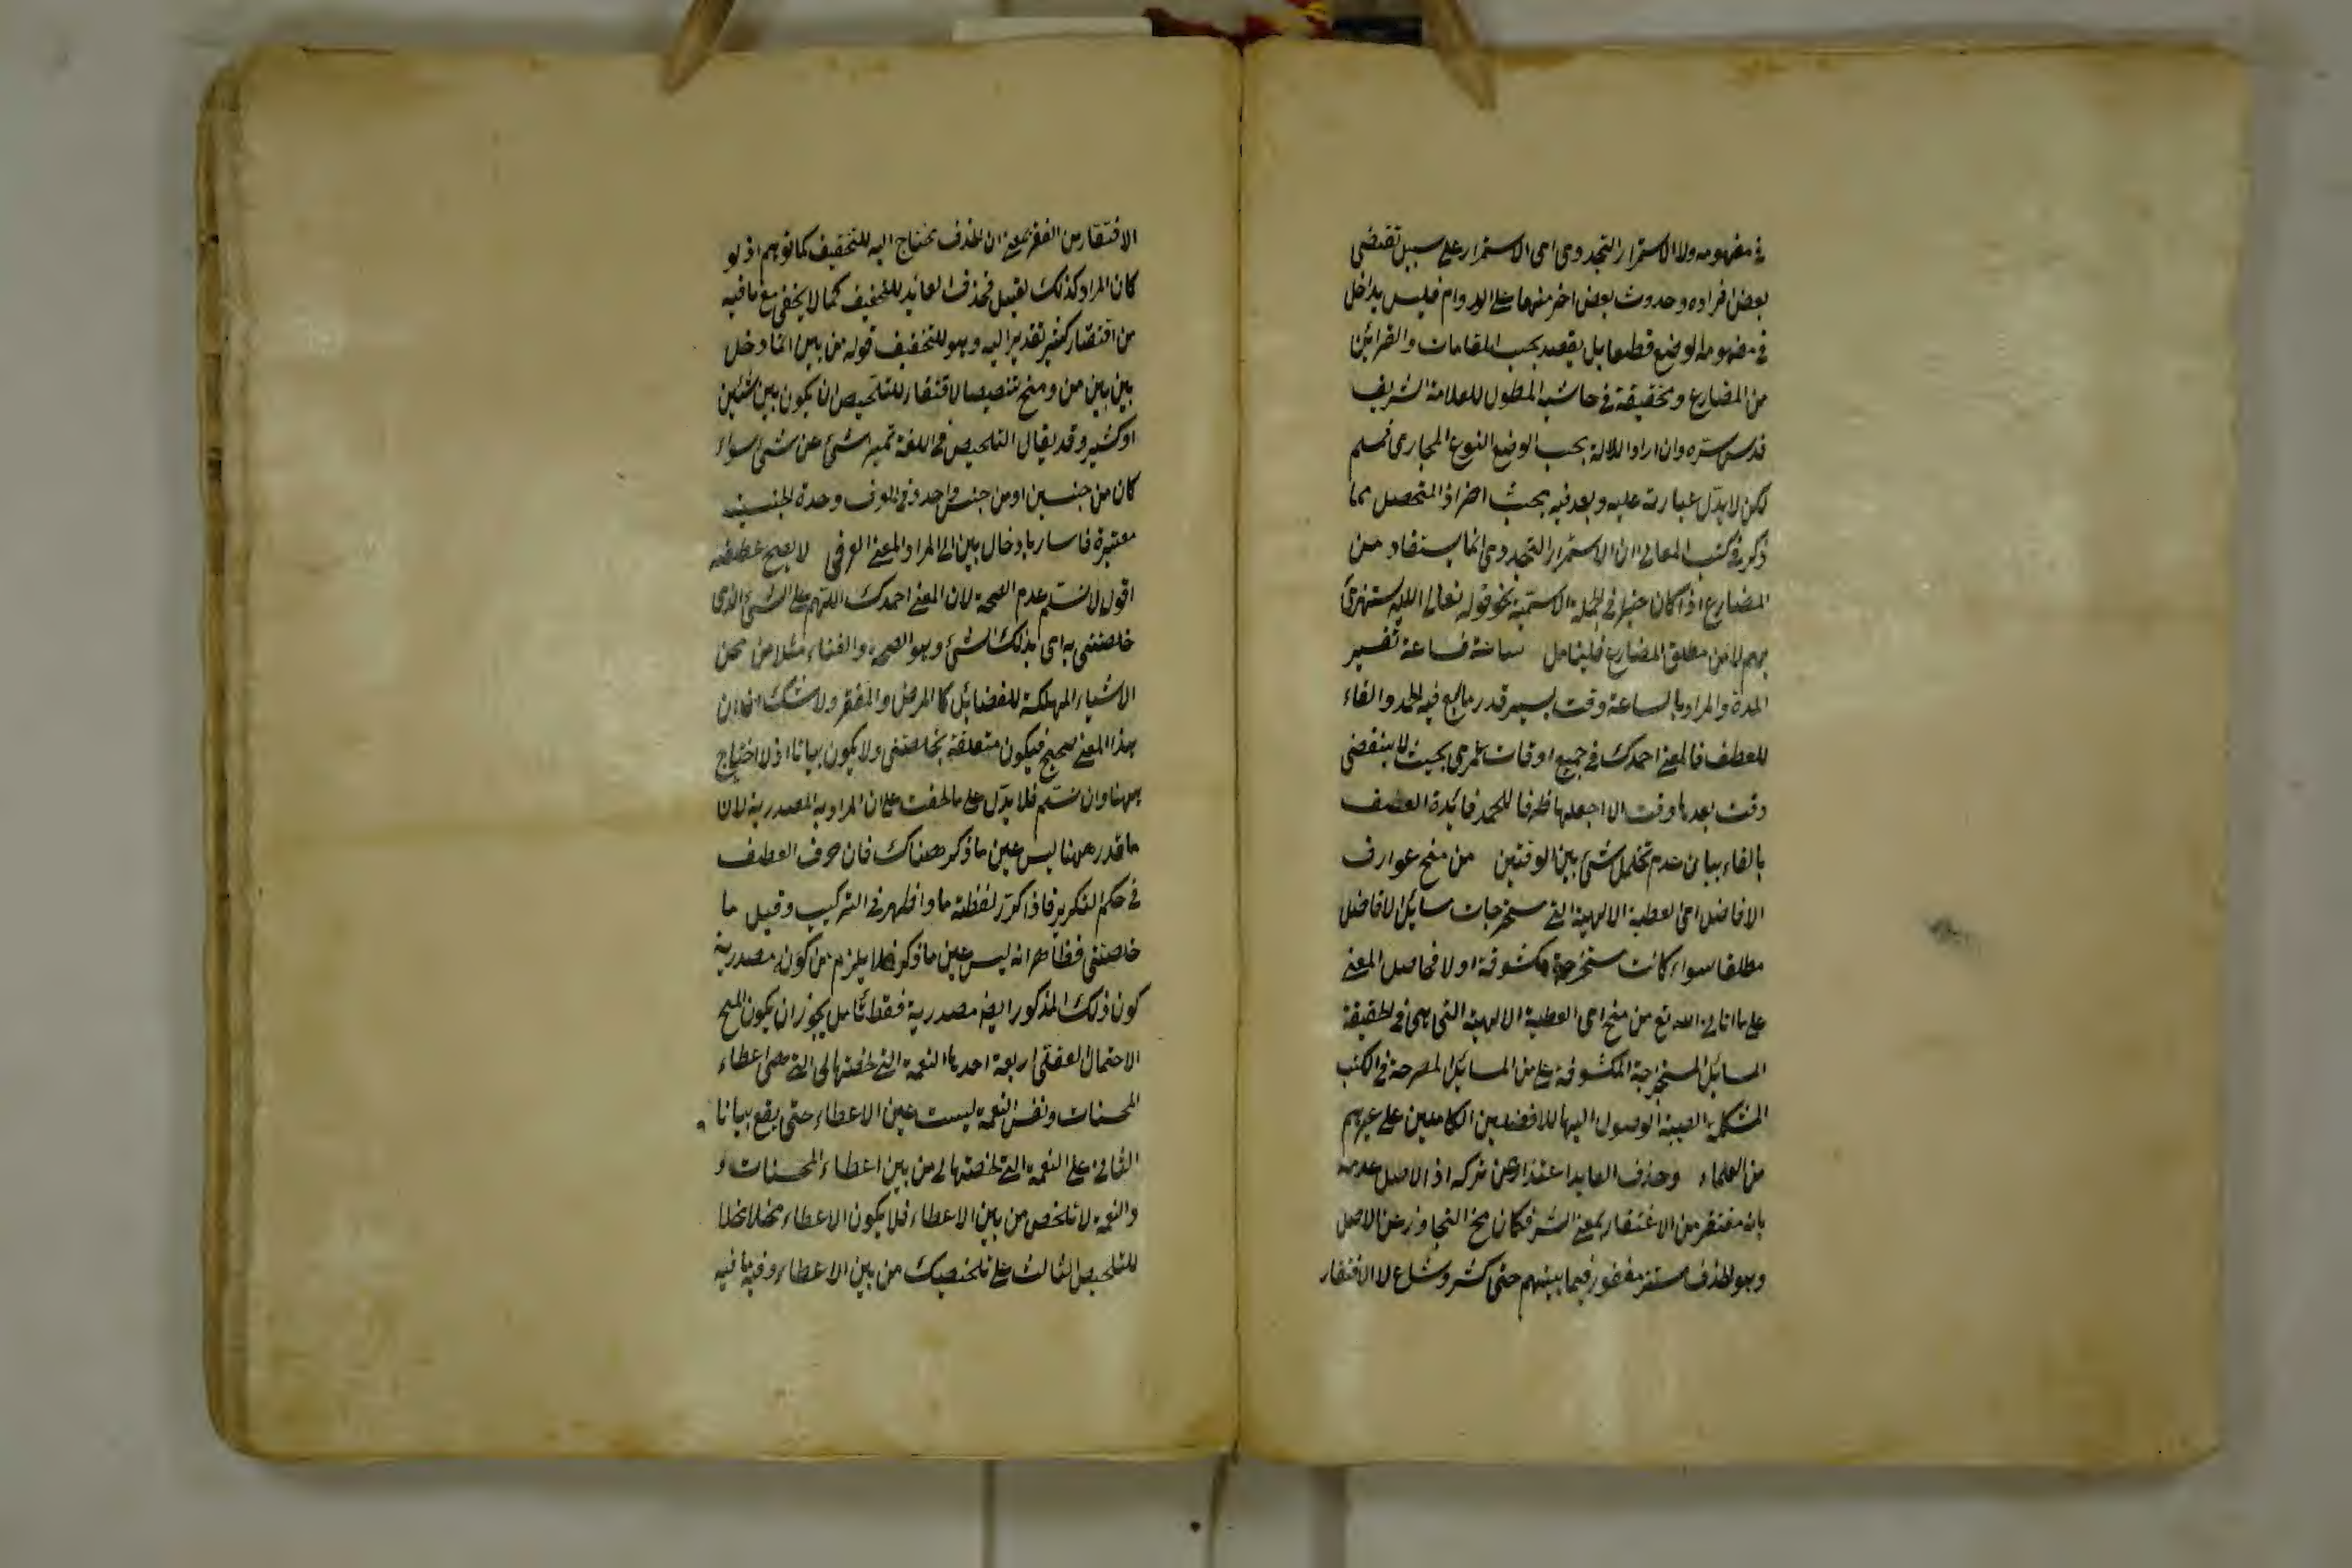 في مفهومه ولا الاستمرار التجددى اى الاستمرار على سبيل تقتضى
بعض افراده وحدوث بعض اخر منها على الدوام فليس بداخل
في مفهومه الوضع قطعا بل يقصد بحسب المقامات والقرائن
من المضارع وتحقيقه في حاشية المطول للعلامة الشريف
قدس سره وان اراد الدلالة بحسب الوضع النوع المجازى فمسلم
لكن لا يدل عبارته عليه وبعد فيه بحث اخر اذ المتحصل مما
ذكر في كتب المعانى ان الاستمرار التجددى انما يستفاد من
المضارع اذا كان خبرا في الجملة الاسمية نحو قوله تعالى الله يستهزئ
بهم لا من مطلق المضارع فليتأمل ساعة فساعة تفسير
المدة والمراد بالساعة وقت يسير قدر ما يقع فيه الحمد والفاء
للعطف فالمعنى احمدك في جميع اوقات عمرى بحيث لا ينقضى
وقت بعدها وقت الا اجعلها ظرفا للحمد فائدة العطف
بالفاء بيان عدم تخلل شئ بين الوقتين من منح عوارف
الافاضل اى العطية الالهية التى مستخرجات مسائل الافاضل
مطلقا سواء كانت مستخرجة مكشوفة اولا فحاصل المعنى
على ما انا لى الله تع من منح اى العطية الالهية التى هى في الحقيقة
المسائل المستخرجة المكشوفة على من المسائل المصرحة في الكتب
المشكلة الصعبة الوصول اليها للافضلين الكاملين على غيرهم
من العلماء وحذف العايد اعتذار عن تركه اذ الاصل عدمه
بانه مغتفر من الاغتفار بمعنى الستر فكان مخ التجاوز عن الاصل
وهو الحذف مستتر مغفور فيما بينهم حتى كثر وشاع لا الافتقار
الافتقار من الفقر بمعنى ان الحذف محتاج اليه للتخفيف كما توهم اذ لو
كان المراد كذلك لقيل فحذف العائد للتخفيف كما لا يخفى مع ما فيه
من افتقار كثير تقدير اليه وهو للتخفيف قوله من بين انما دخل
بين بين من ومنح تنصيصا لافتقار للتلخيص ان يكون بين شئين
او كثير وقد يقال التلخيص في اللغة تميز شئ عن شئ سواء
كان من جنسين او من جنس واحد وفي العرف وحدة الجنسين
معتبرة فاشار بادخال بين الى المراد المعنى العرفى لا يصح عطفه
اقول لا نسلم عدم الصحة لان المعنى احمدك اللهم على الشئ الذى
خلصتنى به اى بذلك الشئ وهو الصحة والغناء مثلا من محن
الاشياء المهلكة للفضائل كالمرض والفقر ولا شك ان
هذا المعنى صحيح فيكون متعلقة بخلصتنى ولا يكون بيانا اذ لا احتياج
ههنا وان نسلم فلا يدل على ما لحقت على ان المراد به المصدرية لان
ما قدر ههنا ليس عين ما ذكر هناك فان حرف العطف
في حكم التكرير فاذا كرر لفظة ما واظهر في التركيب وقيل ما
خلصتنى فظاهر انه ليس عين ما ذكر فلا يلزم من كونه مصدرية
كون ذلك المذكور ايضا مصدرية فقط تأمل يجوز ان يكون المنح
الاحتمال لعقلى اربعة احدها النعمة التى لخصتها لى التى هى اعطاء
المحسنات ونفس النعمة ليست عين الاعطاء حتى يقع بيانا
الثانى على النعمة التى لخصتها لى من بين اعطاء المحسنات و
والنعمة لا تلخص من بين الاعطاء فلا يكون الاعطاء مخلا
للتلخيص الثالث على تلخيصك من بين الاعطاء وفيه ما فيه